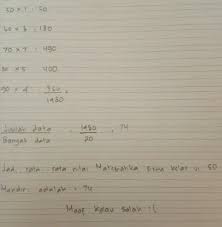 50 x 1 : 50
60 x 3 : 180
70 x 7 : 490
80 x 5 : 400
90 x 4 : 360
1480
Jumlah data : 1480 : 74
Banyak data 20
Jadi, rata - rata nilai Matematika siswa kelas VI SD
Mandiri adalah = 74
Maaf kalau salah :(